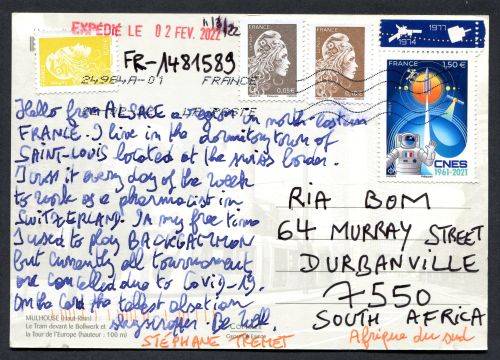 EXPÉDIÉ LE 02 FEV. 2022
FR-1481589
24984A-01 FRANCE
FRANCE
0,05 €
FRANCE
1974 1977
FRANCE 1,50 €
CNES
1961-2021
Hello from ALSACE a region in north-eastern
FRANCE. I live in the dormitory town of
SAINT-LOUIS located at the swiss border.
I cross it every day of the week
to work as a pharmacist in
SWITZERLAND. In my free time
I used to play BACKGAMMON
but currently all tournament
are cancelled due to Covid-19.
On the card the tallest
skyscraper. Be Well
STÉPHANE
RIA BOM
64 MURRAY STREET
DURBANVILLE
7550
SOUTH AFRICA
Afrique du sud
MULHOUSE (Haut-Rhin)
Le Tram devant le Bollwerk et
la Tour de l'Europe (hauteur : 100 m)